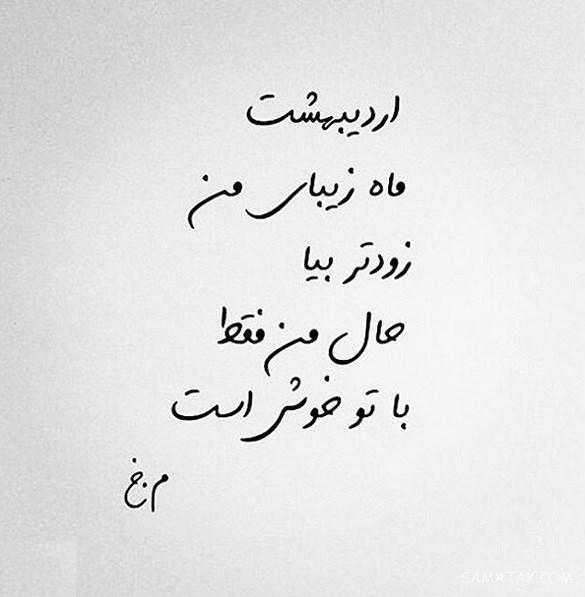 اردیبهشت
ماه زیبای من
زودتر بیا
حال من فقط
با تو خوش است
م.خ
SAMATAK.COM